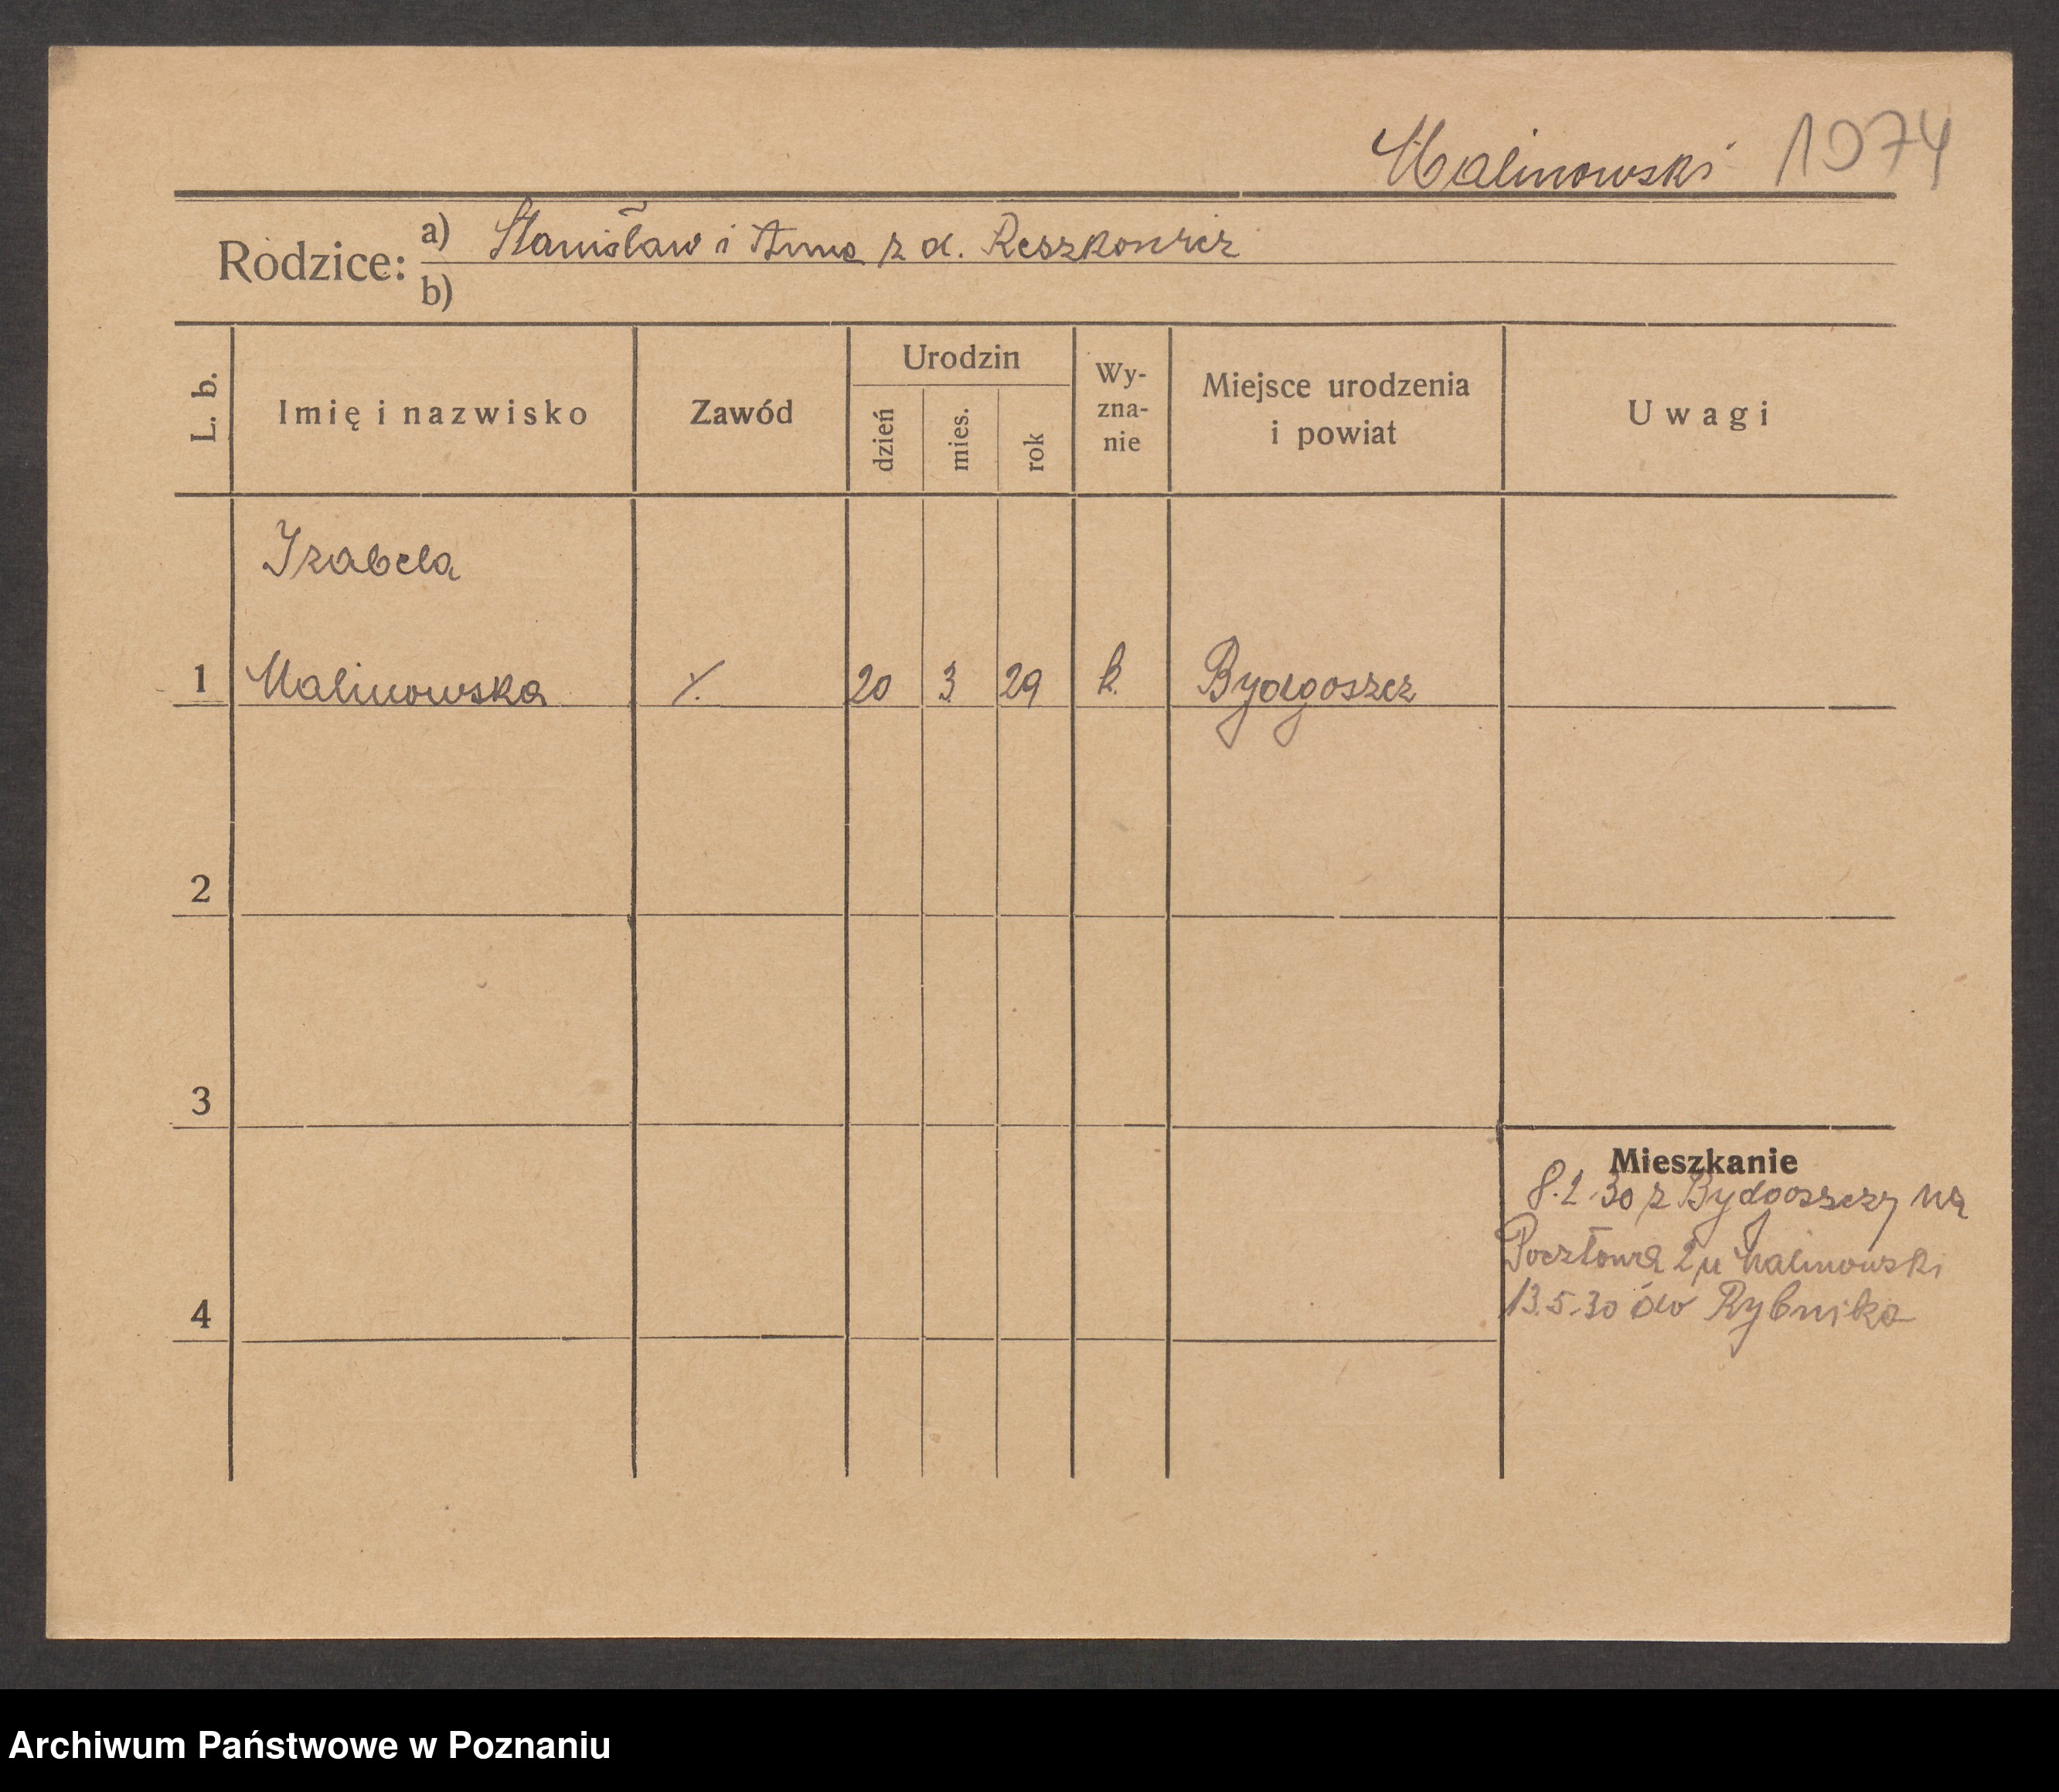 Malinowski 1074
Rodzice: a) Stanisław i Anna z d. Reszkowicz
b)
L. b. Imię i nazwisko Zawód Urodzin dzień mies. rok Wy-zna-nie Miejsce urodzenia i powiat Uwagi
Izabela
1 Malinowska ./. 20 3 29 k. Bydgoszcz
2
3
Mieszkanie
8.2.30 z Bydgoszczy na
Pocztowa 2 u Malinowski
13.5.30 do Rybnika
4
Archiwum Państwowe w Poznaniu